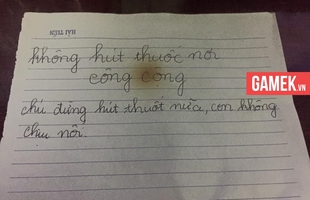 HẢI TIẾN
GAMEK
.VN
không hút thuốc nơi
công cộng
chú đừng hút thuốt nữa, con không
chịu nổi.